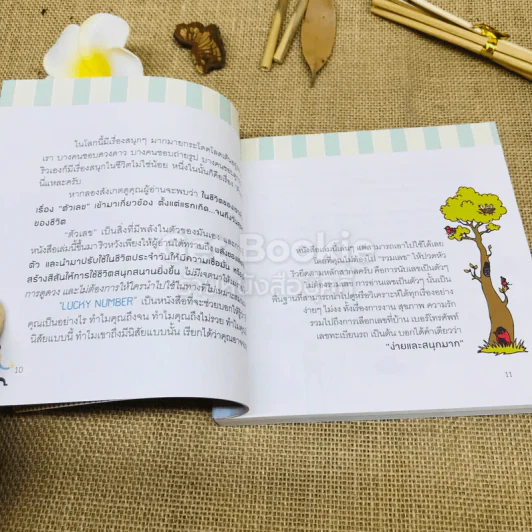 ในโลกนี้มีเรื่องสนุกๆ มากมายกระโดดโลดเต้น
เรา บางคนชอบดวงดาว บางคนชอบถ่ายรูป บางคน
ริวเองก็มีเรื่องสนุกในชีวิตไม่ใช่น้อย หนึ่งในนั้นก็คือเรื่อง
นี่แหละครับ
หากลองสังเกตดูคุณผู้อ่านจะพบว่า ในชีวิตของ
เรื่อง "ตัวเลข" เข้ามาเกี่ยวข้อง ตั้งแต่แรกเกิด...จนถึง
ของชีวิต
"ตัวเลข" เป็นสิ่งที่มีพลังในตัวของมันเอง
หนังสือเล่มนี้ขึ้นมา ริวหวังเพียงให้ผู้อ่านได้ทราบถึง
ตัว และนำมาปรับใช้ในชีวิตประจำวันให้มีความเชื่อมั่น
สร้างสีสันให้การใช้ชีวิตสนุกสนานยิ่งขึ้น ไม่มีเจตนาให้
การดูดวง และไม่ต้องการให้ใครนำไปใช้ในทางที่ไม่เหมาะสม
"LUCKY NUMBER" เป็นหนังสือที่จะช่วยบอกได้
คุณเป็นอย่างไร ทำไมคุณถึงจน ทำไมคุณถึงไม่รวย ทำไม
นิสัยแบบนี้ ทำไมเขาถึงมีนิสัยแบบนั้น เรียกได้ว่าคุณอาจ
10
หนังสือเล่มนี้สนุกๆ แต่สามารถเอาไปใช้ได้เลย
โดยที่คุณไม่ต้องไป "รวมเลข" ให้ปวดหัว
ริวยึดตามหลักสากลครับ คือการนับเลขเป็นตัวๆ
การอ่านเลขเป็นตัวๆ นั้นเป็น
พื้นฐานที่สามารถนำไปดูหรือวิเคราะห์ได้ทุกเรื่องอย่าง
ง่ายๆ ไม่งง ทั้งเรื่องการงาน สุขภาพ ความรัก
รวมไปถึงการเลือกเลขที่บ้าน เบอร์โทรศัพท์
เลขทะเบียนรถ เป็นต้น บอกได้คำเดียวว่า
"ง่ายและสนุกมาก"
11